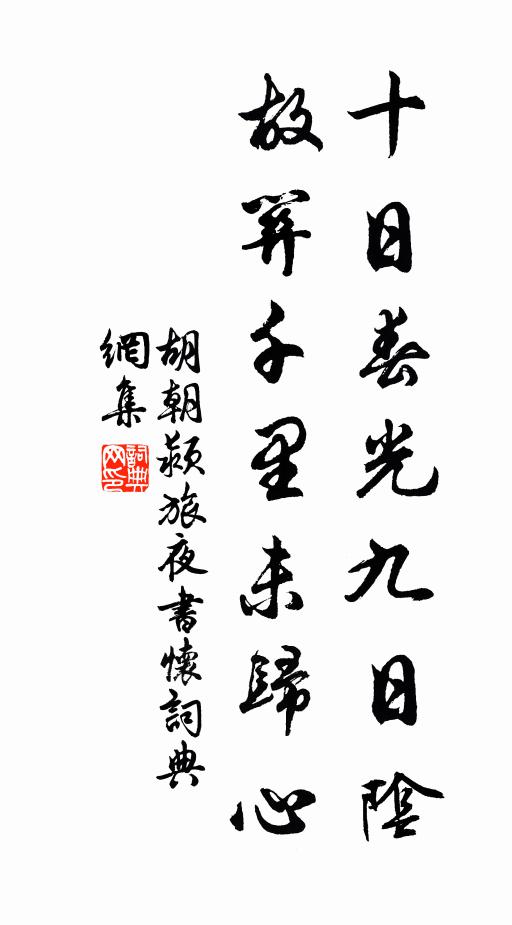 十日春光九日陰
故關千里未歸心
胡朝潁旅夜書懷詞典
網集
詞典網印